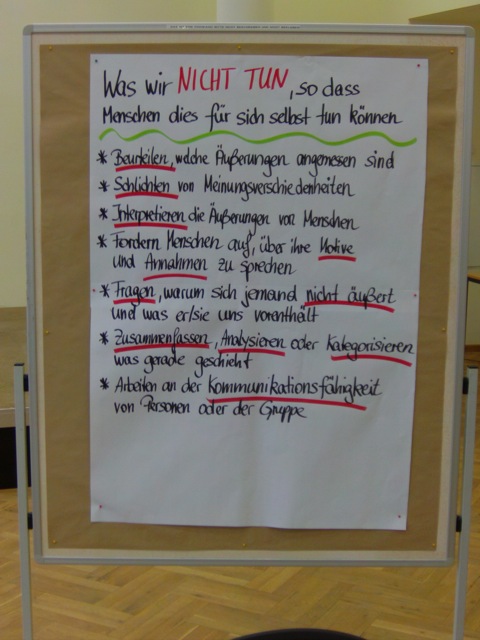 Was wir NICHT TUN, so dass
Menschen dies für sich selbst tun können
* Beurteilen, welche Äußerungen angemessen sind
* Schlichten von Meinungsverschiedenheiten
* Interpretieren die Äußerungen von Menschen
* Fordern Menschen auf, über ihre Motive
und Annahmen zu sprechen
* Fragen, warum sich jemand nicht äußert
und was er/sie uns vorenthält
* Zusammenfassen, Analysieren oder Kategorisieren
was gerade geschieht
* Arbeiten an der Kommunikationsfähigkeit
von Personen oder der Gruppe